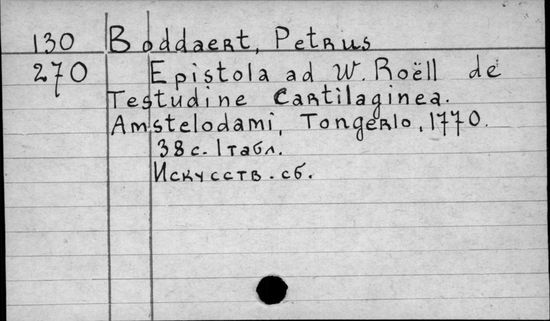 130 Boddaert, Petrus
270 Epistola ad W. Roëll de
Testudine Cartilaginea.
Amstelodami, Tongerlo, 1770.
38 с. 1 табл.
Искусств. сб.